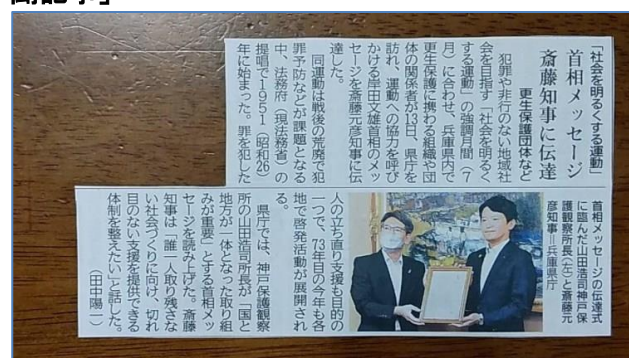 聞記事」
「社会を明るくする運動」
首相メッセージ
斎藤知事に伝達
更生保護団体など
犯罪や非行のない地域社
会を目指す「社会を明るく
する運動」の強調月間（７
月）に合わせ、兵庫県内で
更生保護に携わる組織や団
体の関係者が13日、県庁を
訪れ、運動への協力を呼び
かける岸田文雄首相のメッ
セージを斎藤元彦知事に伝
達した。
同運動は戦後の荒廃で犯
罪予防などが課題となる
中、法務府（現法務省）の
提唱で1951（昭和26）
年に始まった。罪を犯した
人の立ち直り支援も目的の
一つで、73年目の今年も各
地で啓発活動が展開され
る。
県庁では、神戸保護観察
所の山田浩司所長が「国と
地方が一体となった取り組
みが重要」とする首相メッ
セージを読み上げた。斎藤
知事は「誰一人取り残さな
い社会づくりに向け、切れ
目のない支援を提供できる
体制を整えたい」と話した。
（田中陽一）
首相メッセージの伝達式
に臨んだ山田浩司神戸保
護観察所長（左）と斎藤元
彦知事＝兵庫県庁